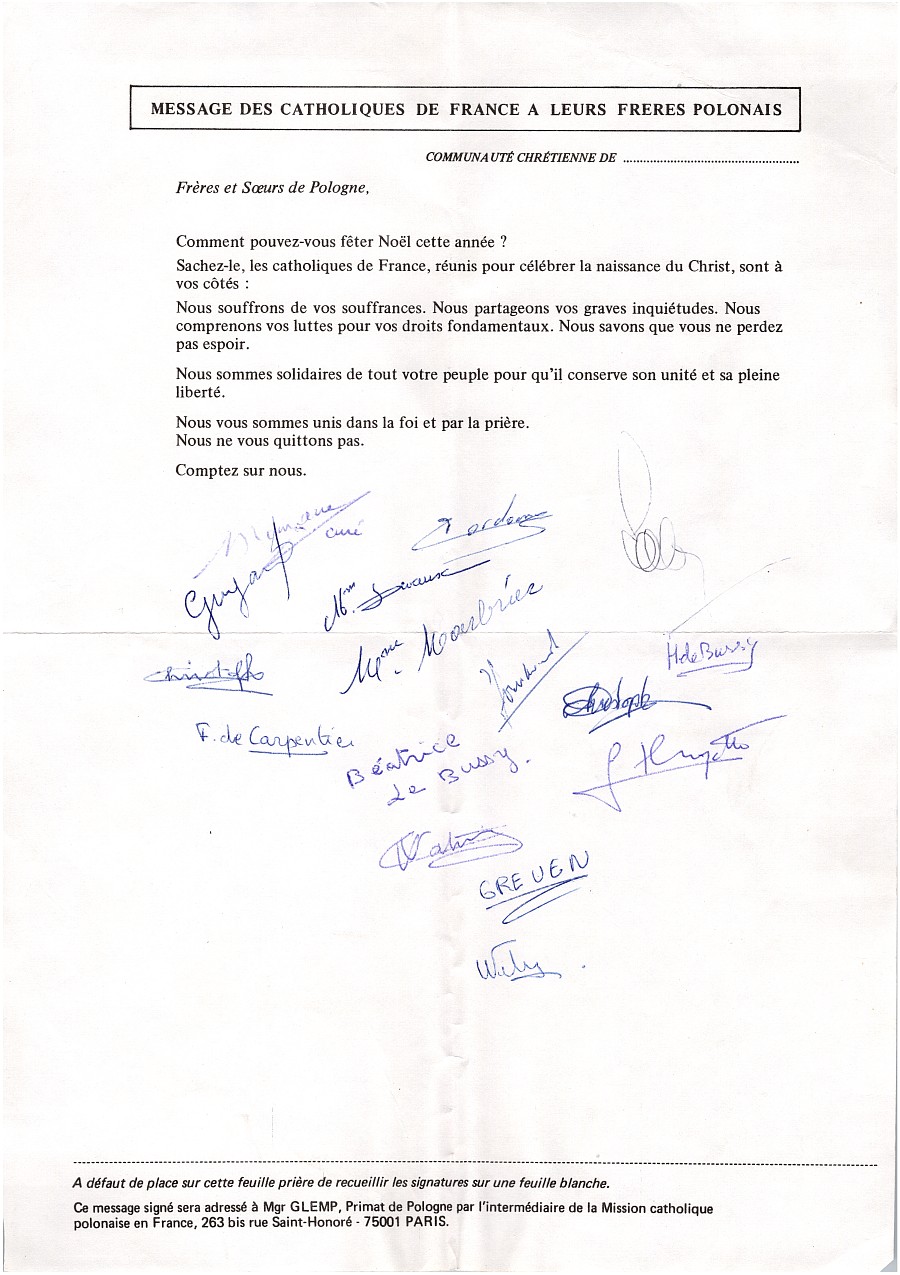 MESSAGE DES CATHOLIQUES DE FRANCE A LEURS FRERES POLONAIS
COMMUNAUTÉ CHRÉTIENNE DE ....................................................
Frères et Sœurs de Pologne,
Comment pouvez-vous fêter Noël cette année ?
Sachez-le, les catholiques de France, réunis pour célébrer la naissance du Christ, sont à
vos côtés :
Nous souffrons de vos souffrances. Nous partageons vos graves inquiétudes. Nous
comprenons vos luttes pour vos droits fondamentaux. Nous savons que vous ne perdez
pas espoir.
Nous sommes solidaires de tout votre peuple pour qu'il conserve son unité et sa pleine
liberté.
Nous vous sommes unis dans la foi et par la prière.
Nous ne vous quittons pas.
Comptez sur nous.
curé
Mme
H de Bussy
Christophe
F. de Carpentier
Béatrice
de Bussy.
GREVEN
A défaut de place sur cette feuille prière de recueillir les signatures sur une feuille blanche.
Ce message signé sera adressé à Mgr GLEMP, Primat de Pologne par l'intermédiaire de la Mission catholique
polonaise en France, 263 bis rue Saint-Honoré - 75001 PARIS.